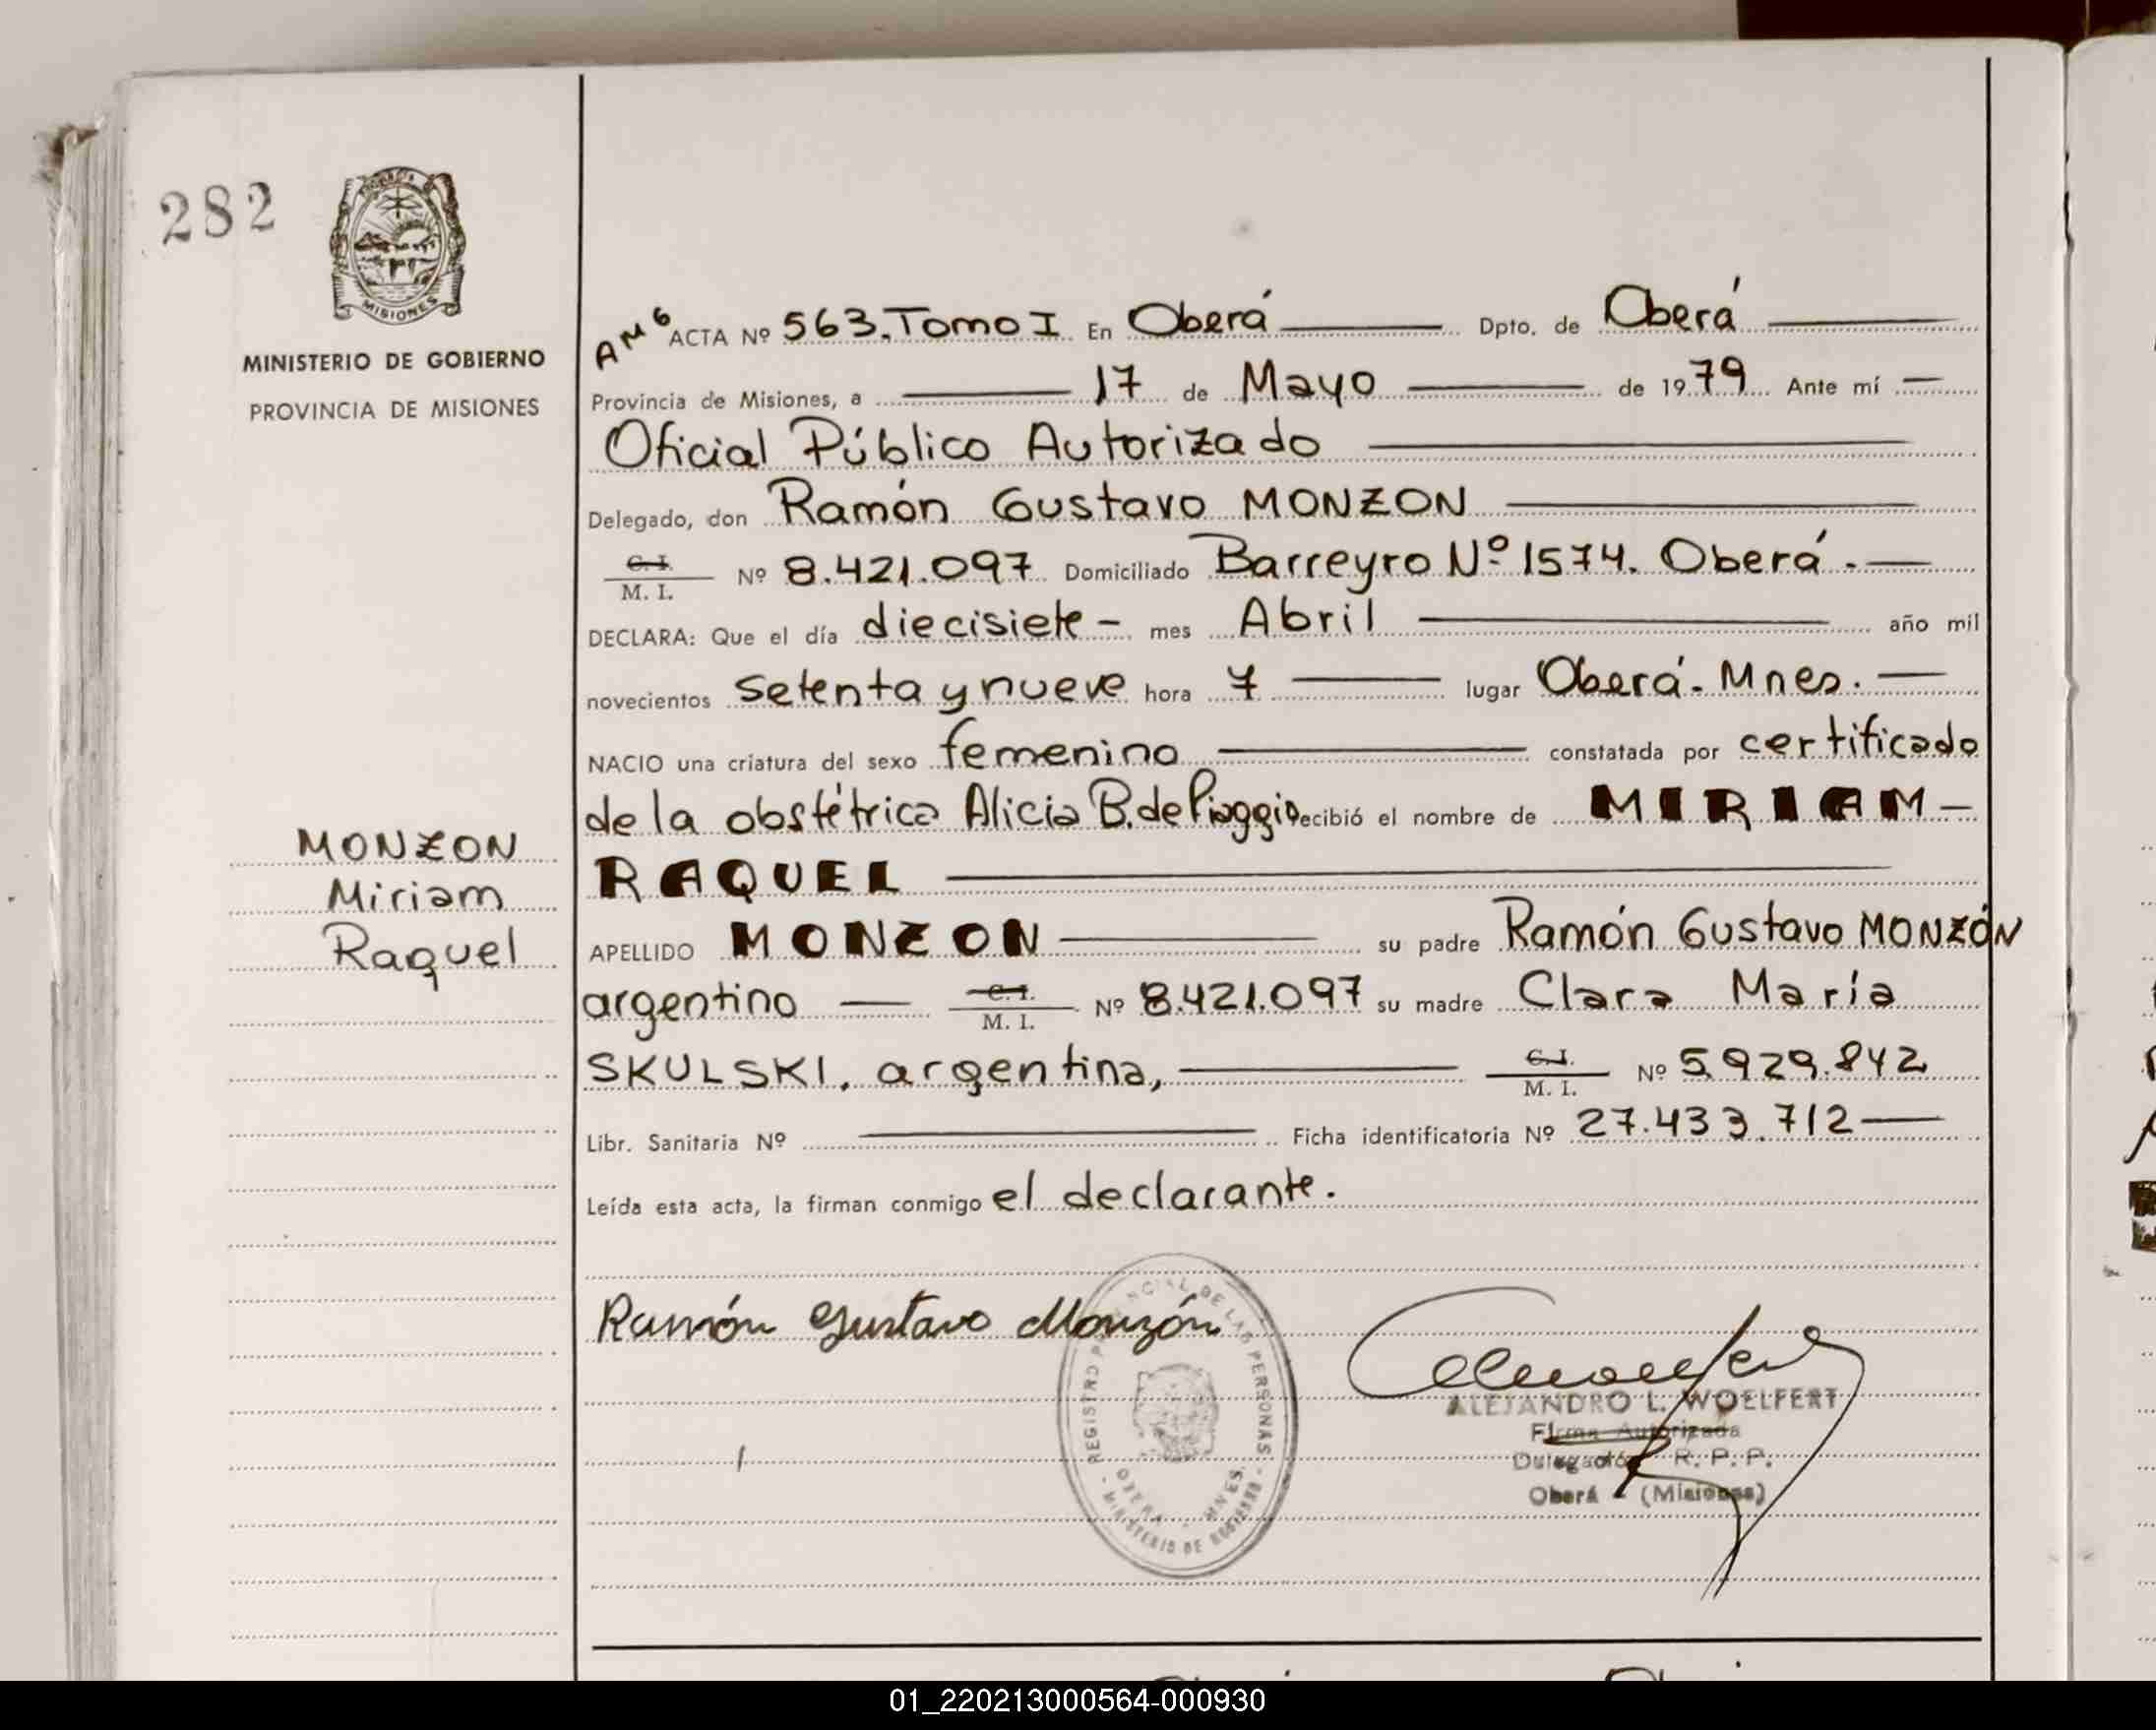 282
MISIONES
MINISTERIO DE GOBIERNO
PROVINCIA DE MISIONES
MONZON
Miriam
Raquel
AM6 ACTA Nº 563. Tomo I En Oberá Dpto. de Oberá
Provincia de Misiones, a 17 de Mayo de 1979 Ante mí
Oficial Público Autorizado
Delegado, don Ramón Gustavo MONZON
C. I.
M. I. Nº 8.421.097 Domiciliado Barreyro Nº 1574. Oberá.
DECLARA: Que el día diecisiete mes Abril año mil
novecientos setenta y nueve hora 7 lugar Oberá. Mnes.
NACIO una criatura del sexo femenino constatada por certificado
de la obstétrica Alicia B. de Piaggio ecibió el nombre de MIRIAM
RAQUEL
APELLIDO MONZON su padre Ramón Gustavo MONZÓN
argentino C. I.
M. I. Nº 8.421.097 su madre Clara María
SKULSKI, argentina, C. I.
M. I. Nº 5.929.842
Libr. Sanitaria Nº Ficha identificatoria Nº 27.433.712
Leída esta acta, la firman conmigo el declarante.
Ramón Gustavo Monzón
REGISTRO PROVINCIAL DE LAS PERSONAS
OBERA - MNES.
MINISTERIO DE GOBIERNO
ALEJANDRO L. WOELFERT
Firma Autorizada
Delegación R. P. P.
Oberá - (Misiones)
01_220213000564-000930